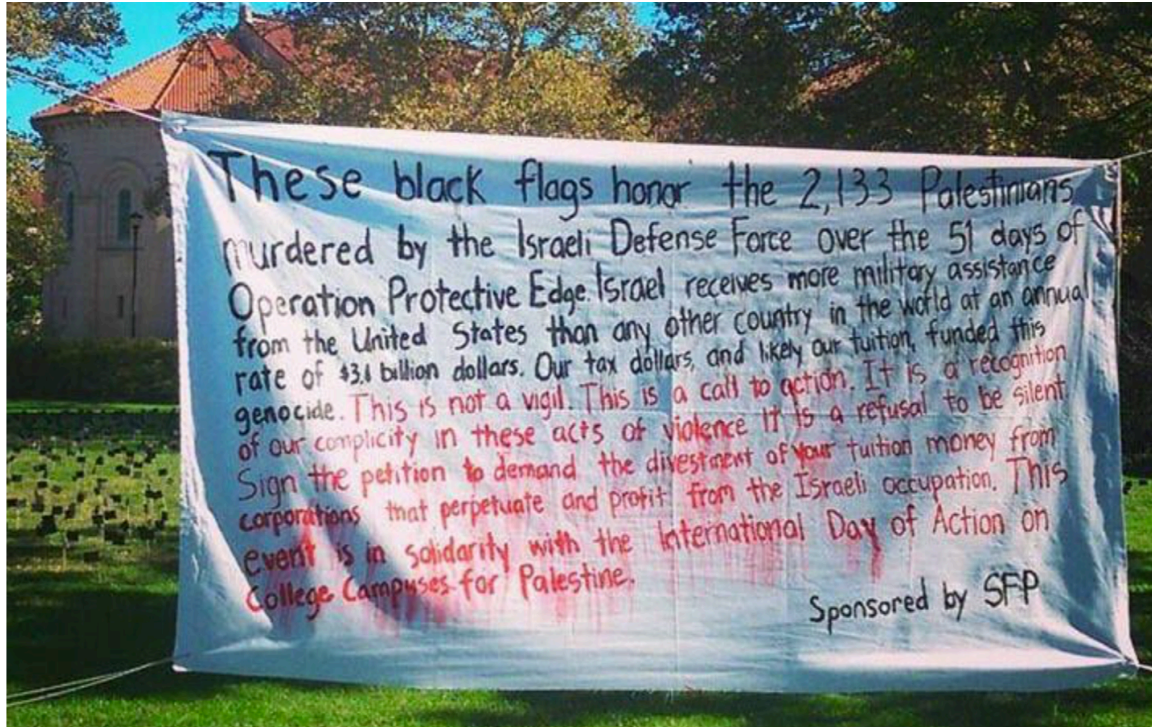 These black flags honor the 2,133 Palestinians
murdered by the Israeli Defense Force over the 51 days of
Operation Protective Edge. Israel receives more military assistance
from the United States than any other country in the world at an annual
rate of $3.1 billion dollars. Our tax dollars, and likely our tuition, funded this
genocide. This is not a vigil. This is a call to action. It is a recognition
of our complicity in these acts of violence It is a refusal to be silent
Sign the petition to demand the divestment of your tuition money from
corporations that perpetuate and profit from the Israeli occupation. This
event is in solidarity with the International Day of Action on
College Campuses for Palestine.
Sponsored by SFP